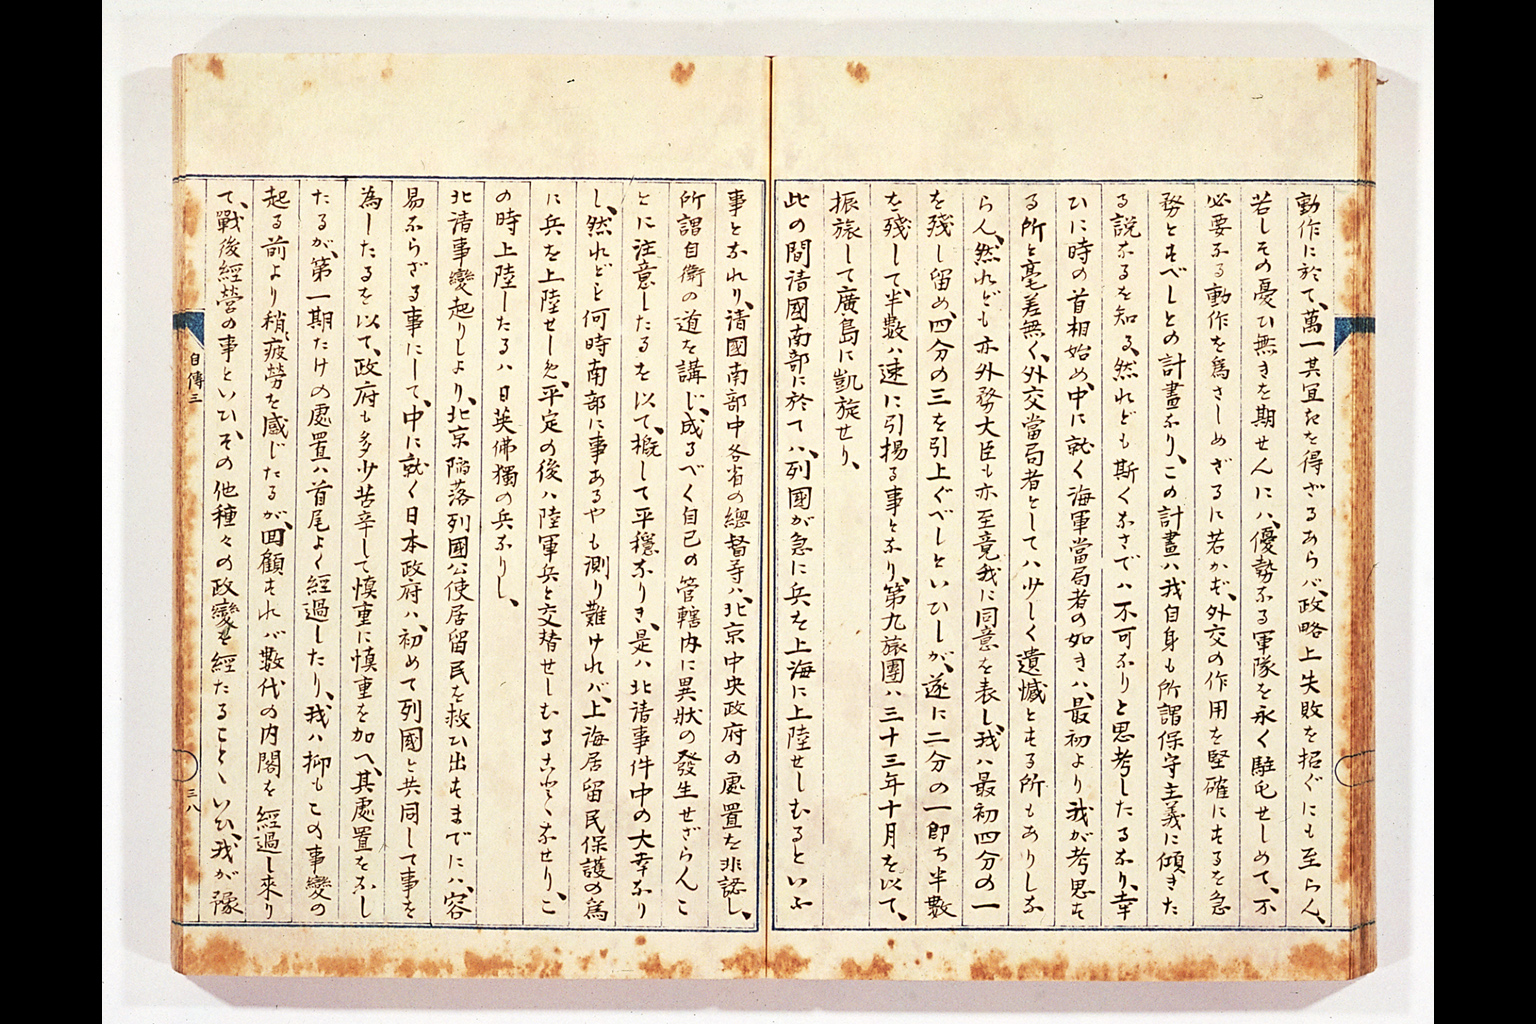 動作に於て、萬一其宜を得ざるあらバ、政略上失敗を招ぐにも至らん、
若しその憂ひ無きを期せんにハ、優勢なる軍隊を永く駐屯せしめて、不
必要なる動作を爲さしめざるに若かず、外交の作用を堅確にするを急
務とすべしとの計畫なり、この計畫ハ我自身も所謂保守主義に傾きた
る説なるを知る、然れども斯くなさでハ不可なりと思考したるなり、幸
ひに時の首相始め、中に就く海軍當局者の如きハ、最初より我が考思す
る所と毫差無く、外交當局者としてハ少しく遺憾とする所もありしな
らん、然れども亦外務大臣も亦至竟我に同意を表し、我ハ最初四分の一
を殘し留め、四分の三を引上ぐべしといひしが、遂に二分の一即ち半數
を殘して、半數ハ速に引揚る事となり、第九旅團ハ三十三年十月を以て、
振旅して廣島に凱旋せり、
此の間清國南部に於てハ、列國が急に兵を上海に上陸せしむるといふ
事となれり、清國南部中各省の總督等ハ、北京中央政府の處置を非認し、
所謂自衛の道を講じ、成るべく自己の管轄内に異状の發生せざらんこ
とに注意したるを以て、概して平穩なりき、是ハ北清事件中の大幸なり
し、然れども何時南部に事あるやも測り難ければ、上海居留民保護の爲
に兵を上陸せしめ、平定の後ハ陸軍兵と交替せしむることゝなせり、こ
の時上陸したるハ日英佛獨の兵なりし、
北清事變起りしより、北京陷落列國公使居留民を救ひ出すまでにハ、容
易ならざる事にして、中に就く日本政府ハ、初めて列國と共同して事を
為したるを以て、政府も多少苦辛して慎重に慎重を加へ、其處置をなし
たるが、第一期たけの處置ハ首尾よく經過したり、我ハ抑もこの事變の
起る前より稍疲勞を感じたるが、回顧すれバ數代の内閣を經過し來り
て、戰後經營の事といひ、その他種々の政變を經たることゝいひ、我が豫
自傳三
三八